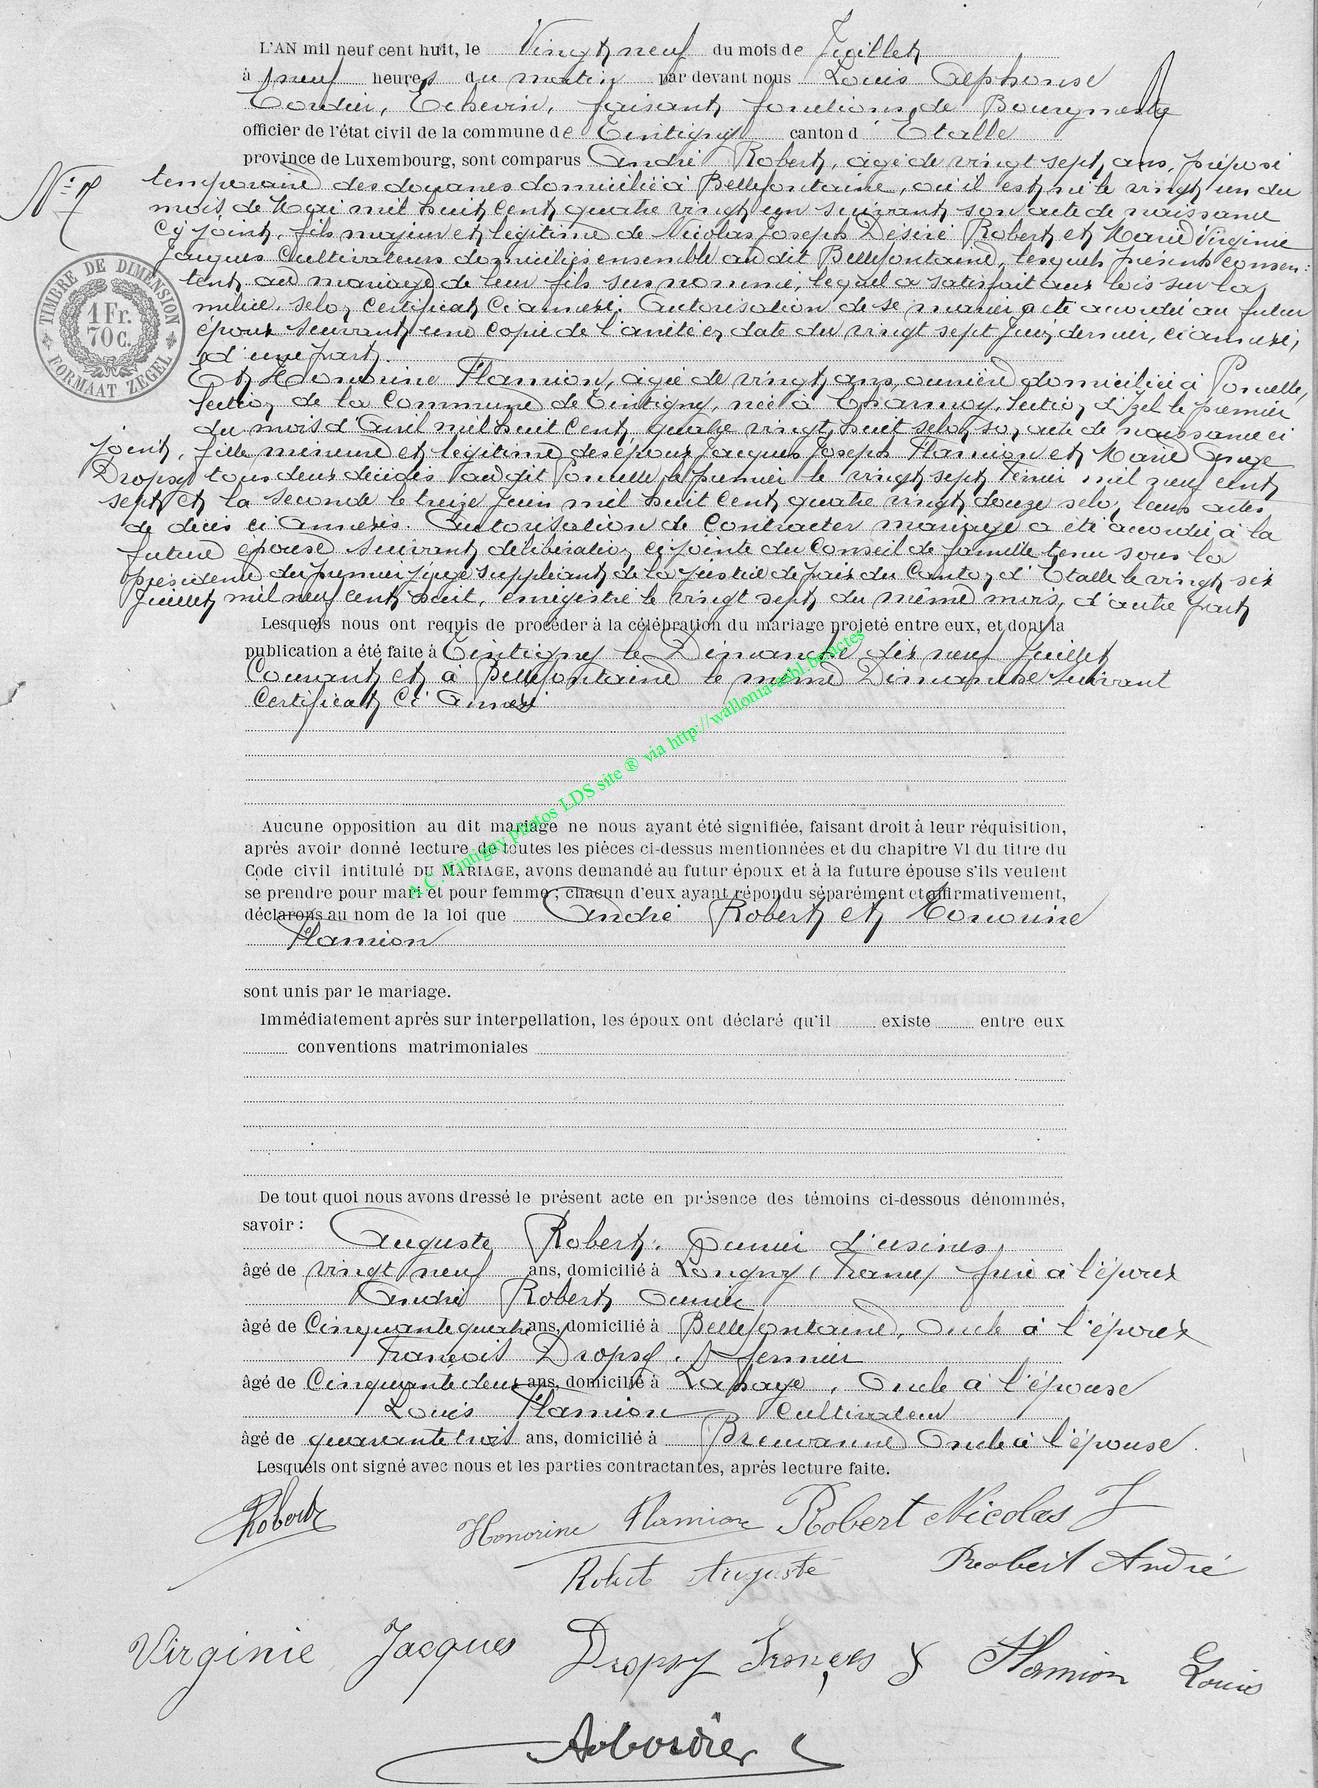 L'AN mil neuf cent huit, le Vingt neuf du mois de Juillet
à neuf heures du matin par devant nous Louis Alphonse
Cordier, Echevin, faisant fonctions de Bourgmestre
officier de l'état civil de la commune de Tintigny canton d'Etalle
province de Luxembourg, sont comparus André Robert, âgé de vingt sept ans, préposé
N° 7
temporaire des douanes domicilié à Bellefontaine, où il est né le vingt un du
mois de Mai mil huit cent quatre vingt un suivant son acte de naissance
cy joint, fils majeur et légitime de Nicolas Joseph Désiré Robert et Marie Virginie
Jacques Cultivateurs domiciliés ensemble au dit Bellefontaine, lesquels présents consen-
tent au mariage de leur fils susnommé, lequel a satisfait aux lois sur la
milice, selon certificat ci annexé. Autorisation de se marier a été accordée au futur
époux suivant une copie de l'arrêté en date du vingt sept Juin dernier, ci annexé,
d'une part.
TIMBRE DE DIMENSION
1 Fr.
70 c.
FORMAAT ZEGEL
Et Honorine Flamion, âgée de vingt ans, ouvrière domiciliée à Poncelle,
Section de la Commune de Tintigny, née à Charmoy, Section d'Izel le premier
du mois d'Avril mil huit cent quatre vingt huit selon son acte de naissance ci
joint, fille mineure et légitime des époux Jacques Joseph Flamion et Marie Ange
Dropsy tous deux décédés au dit Poncelle le premier le vingt sept Février mil neuf cent
sept et la seconde le treize Juin mil huit cent quatre vingt douze selon leurs actes
de décès ci Annexés. Autorisation de Contracter mariage a été accordée à la
future épouse suivant délibération ci jointe du Conseil de famille tenu sous la
présidence du premier juge suppléant de la justice de paix du Canton d'Etalle le vingt six
Juillet mil neuf cent huit, enregistré le vingt sept du même mois, d'autre part
Lesquels nous ont requis de procéder à la célébration du mariage projeté entre eux, et dont la
publication a été faite à Tintigny le Dimanche dix neuf Juillet
Courant et à Bellefontaine le même Dimanche suivant
Certificat Ci Annexé
A.C. Tintigny photos LDS site ® via http://wallonia-asbl.be/actes
Aucune opposition au dit mariage ne nous ayant été signifiée, faisant droit à leur réquisition,
après avoir donné lecture de toutes les pièces ci-dessus mentionnées et du chapitre VI du titre du
Code civil intitulé DU MARIAGE, avons demandé au futur époux et à la future épouse s'ils veulent
se prendre pour mari et pour femme ; chacun d'eux ayant répondu séparément et affirmativement,
déclarons au nom de la loi que André Robert et Honorine
Flamion
sont unis par le mariage.
Immédiatement après sur interpellation, les époux ont déclaré qu'il existe entre eux
conventions matrimoniales
De tout quoi nous avons dressé le présent acte en présence des témoins ci-dessous dénommés,
savoir : Auguste Robert, Ouvrier d'usines,
âgé de vingt neuf ans, domicilié à Longwy (France) frère à l'époux
André Robert Ouvrier
âgé de Cinquante quatre ans, domicilié à Bellefontaine, Oncle à l'époux
François Dropsy, fermier
âgé de Cinquante deux ans, domicilié à Lahage, Oncle à l'épouse
Louis Flamion Cultivateur
âgé de quarante trois ans, domicilié à Breuvanne Oncle à l'épouse.
Lesquels ont signé avec nous et les parties contractantes, après lecture faite.
Robert Honorine Flamion Robert Nicolas J
Robert Auguste Robert André
Virginie Jacques Dropsy François Flamion Louis